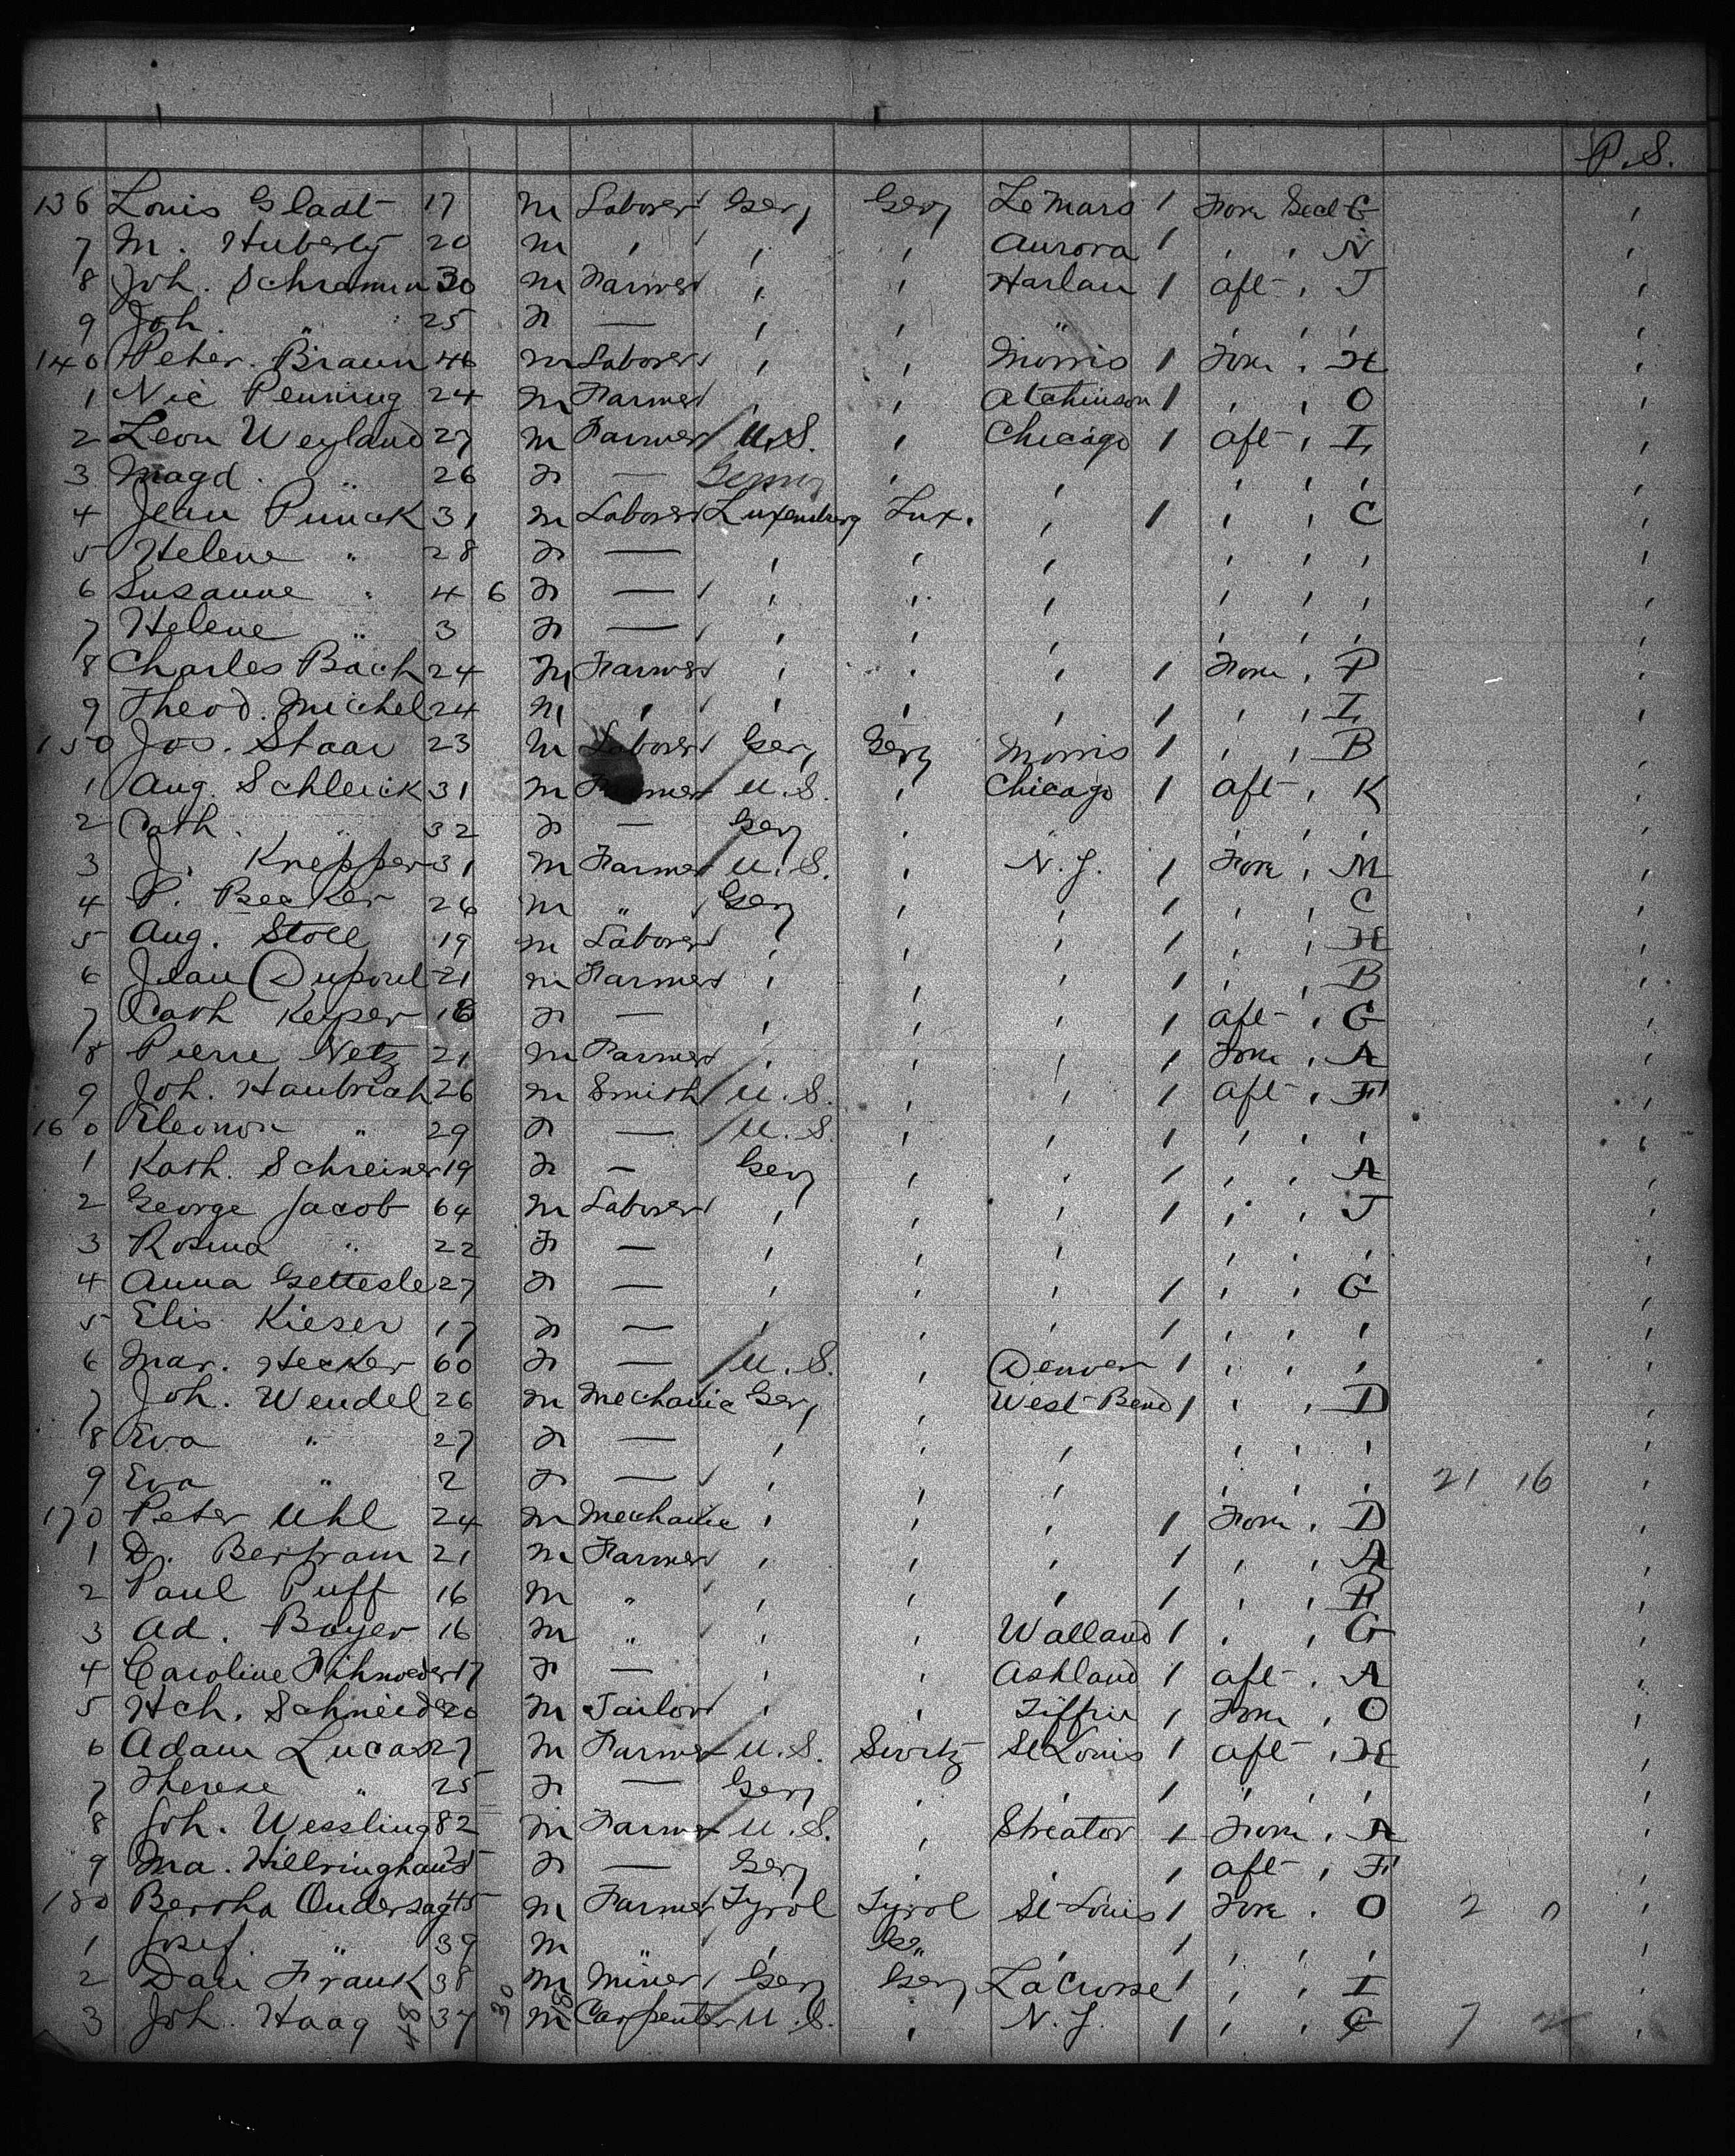 P. S.
136 Louis Gladt 17 m Laborer Gery Gery Le Mars 1 Fore Sect G ,
7 M. Huberty 20 m , , , Aurora 1 , , N ,
8 Joh. Schramm 30 m Farmer , , Harlan 1 aft , J ,
9 Joh. " 25 f — , , " , , , ,
140 Peter Braun 46 m Laborer , , Morris 1 Fore , H ,
1 Nic Penning 24 m Farmer , , Atchinson 1 , , O ,
2 Leon Weyland 27 m Farmer U.S. , Chicago 1 aft , L ,
3 Magd. " 26 f — Germy , , , , , ,
4 Jean Pimick 31 m Laborer Luxemburg Lux. , 1 , , C ,
5 Helene " 28 f — , , , , , , ,
6 Susanne " 4 6 f — , , , , , , ,
7 Helene " 3 f — , , , , , , ,
8 Charles Bach 24 m Farmer , , , 1 Fore , P ,
9 Theod. Michel 24 m , , , , 1 , , L ,
150 Jos. Staar 23 m Laborer Gery Gery Morris 1 , , B ,
1 Aug. Schleick 31 m Farmer U.S. , Chicago 1 aft , K ,
2 Cath. " 32 f — Gery , " , , , ,
3 J. Knepper 31 m Farmer U.S. , N.Y. 1 Fore , M ,
4 P. Becker 26 m " Gery , , 1 , , C ,
5 Aug. Stoll 19 m Laborer , , , 1 , , H ,
6 Jean Dupont 21 m Farmer , , , 1 , , B ,
7 Cath Keiper 18 f — , , , 1 aft , G ,
8 Pierre Netz 21 m Farmer , , , 1 Fore , A ,
9 Joh. Haubrich 26 m Smith U.S. , , 1 aft , F ,
160 Eleonor " 29 f — U.S. , , 1 , , , ,
1 Kath. Schreiner 19 f — Gery , , 1 , , A ,
2 George Jacob 64 m Laborer , , , 1 , , J ,
3 Rosina " 22 F — , , , , , , ,
4 Anna Gettesle 27 f — , , , 1 , , G ,
5 Elis Kieser 17 f — , , , 1 , , , ,
6 Mar. Hecker 60 f — U.S. , Denver 1 , , , ,
7 Joh. Wendel 26 m Mechanic Gery , West Bend 1 , , D ,
8 Eva " 27 f — , , , , , , ,
9 Eva " 2 f — , , , , , , 21 16 ,
170 Peter Uhl 24 m Mechanic , , , 1 Fore , D ,
1 D. Bertram 21 m Farmer , , , 1 , , A ,
2 Paul Puff 16 m " , , , 1 , , B ,
3 Ad. Bayer 16 m " , , Walland 1 , , G ,
4 Caroline 17 f — , , Ashland 1 aft , A ,
5 Hch. Schneider 20 m Tailor , , Tiffin 1 Fore , O ,
6 Adam Lucas 27 m Farmer U.S. Switz St Louis 1 aft , H ,
7 Therese " 25 f — Gery , , 1 " , , ,
8 Joh. Wessling 82 m Farmer U.S. , Streator 1 Fore , A ,
9 Ma. Hillringhaus f — Gery , , 1 aft , F ,
180 Bertha Ondersag 45 m Farmer Tyrol Tyrol St Louis 1 Fore , O 2 0 ,
1 Josef. " 39 m " , , 1 , , , ,
2 Dan Frank 38 m Miner Gery Gery La Crosse 1 , , I ,
3 Joh. Haag 37 m Carpenter U.S. , N.Y. 1 , , C 7 2 ,
48 30 18